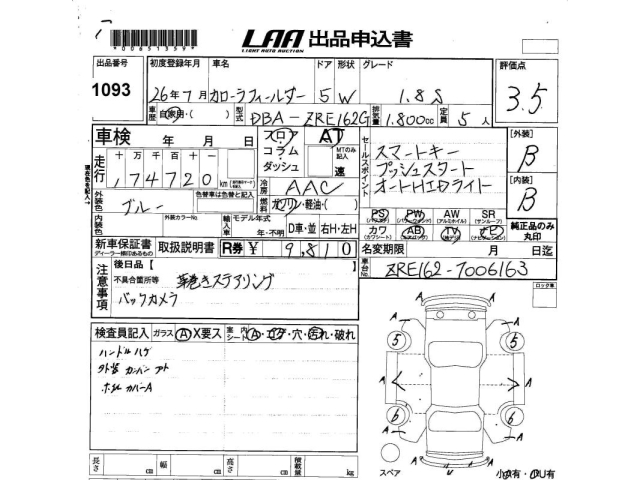 *0065135*
LAA 出品申込書
LIGHT AUTO AUCTION
出品番号 初度登録年月 車名 ドア 形状 グレード 評価点
1093 26年7月 カローラフィールダー 5 W 1.8S 3.5
車歴 自家用・( ) 型式 DBA-ZRE162G 排気量 1.800cc 定員 5人
車検 年 月 日
フロア コラム ダッシュ AT MTのみ記入 速
セールスポイント スマートキー
プッシュスタート
オートHIDライト
[外装] B
[内装] B
走行 十万千百十一
,74720 km
冷房 AAC
燃料 ガソリン・軽油・( )
外装色 ブルー 色替車は色替と記入
内装色 外装カラーNo. 輸入車 モデル年式 年・不明 D車・並 右H・左H
PS PW AW SR
(パワステ) (パワーウィンドウ) (アルミホイール) (サンルーフ)
カワ AB TV ナビ
純正品のみ丸印
新車保証書 取扱説明書 R券 ¥ 9,810
ディーラー横印あるもの
名変期限 月 日迄
車台No. ZRE162-7006163
注意事項 後日品【 】
不具合箇所等 革巻きステアリング
バックカメラ
ロック車
検査員記入 ガラス A X要ス 室内シート A・コゲ・穴・汚れ・破れ
ハンドルハゲ
A A
5 5
A A A A
6 6
A A
A
スペア
長さ cm 幅 cm 高さ cm 積載量 kg